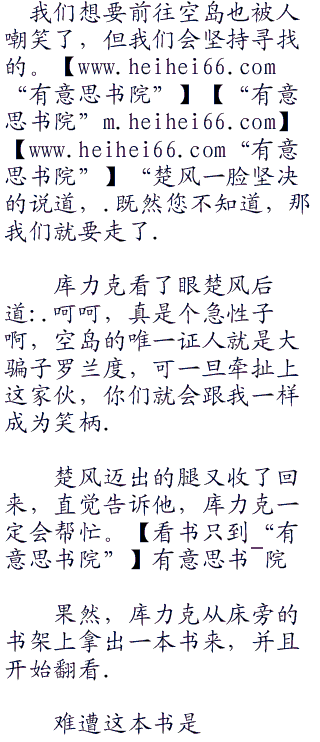 我们想要前往空岛也被人
嘲笑了，但我们会坚持寻找
的。【www.heihei66.com
“有意思书院”】【“有意
思书院”m.heihei66.com】
【www.heihei66.com“有意
思书院”】“楚风一脸坚决
的说道，.既然您不知道，那
我们就要走了.
库力克看了眼楚风后
道:.呵呵，真是个急性子
啊，空岛的唯一证人就是大
骗子罗兰度，可一旦牵扯上
这家伙，你们就会跟我一样
成为笑柄.
楚风迈出的腿又收了回
来，直觉告诉他，库力克一
定会帮忙。【看书只到“有
意思书院”】有意思书¯院
果然，库力克从床旁的
书架上拿出一本书来，并且
开始翻看.
难遭这本书是